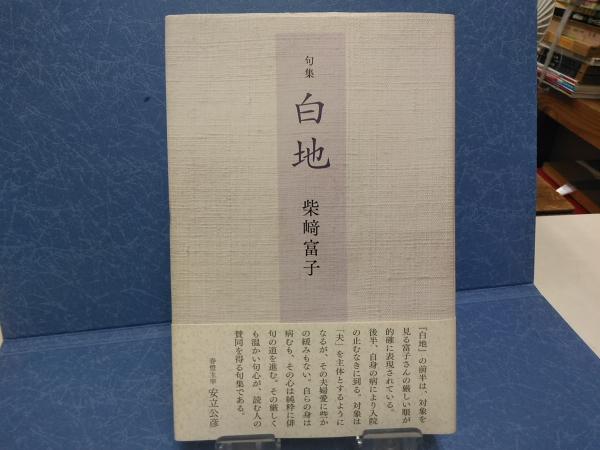 句集
白地
柴﨑富子
『白地』の前半は、対象を
見る富子さんの厳しい眼が
的確に表現されている。
後半、自身の病により入院
の止むなきに到る。対象は
「夫」を主体とするように
なるが、その夫婦愛に些か
の緩みもない。自らの身は
病むも、その心は純粋に俳
句の道を進む。その厳しく
も温かい句心が、読む人の
賛同を得る句集である。
春燈主宰 安立公彦